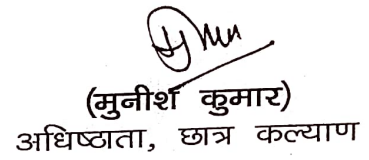 (मुनीश कुमार)
अधिष्ठाता, छात्र कल्याण